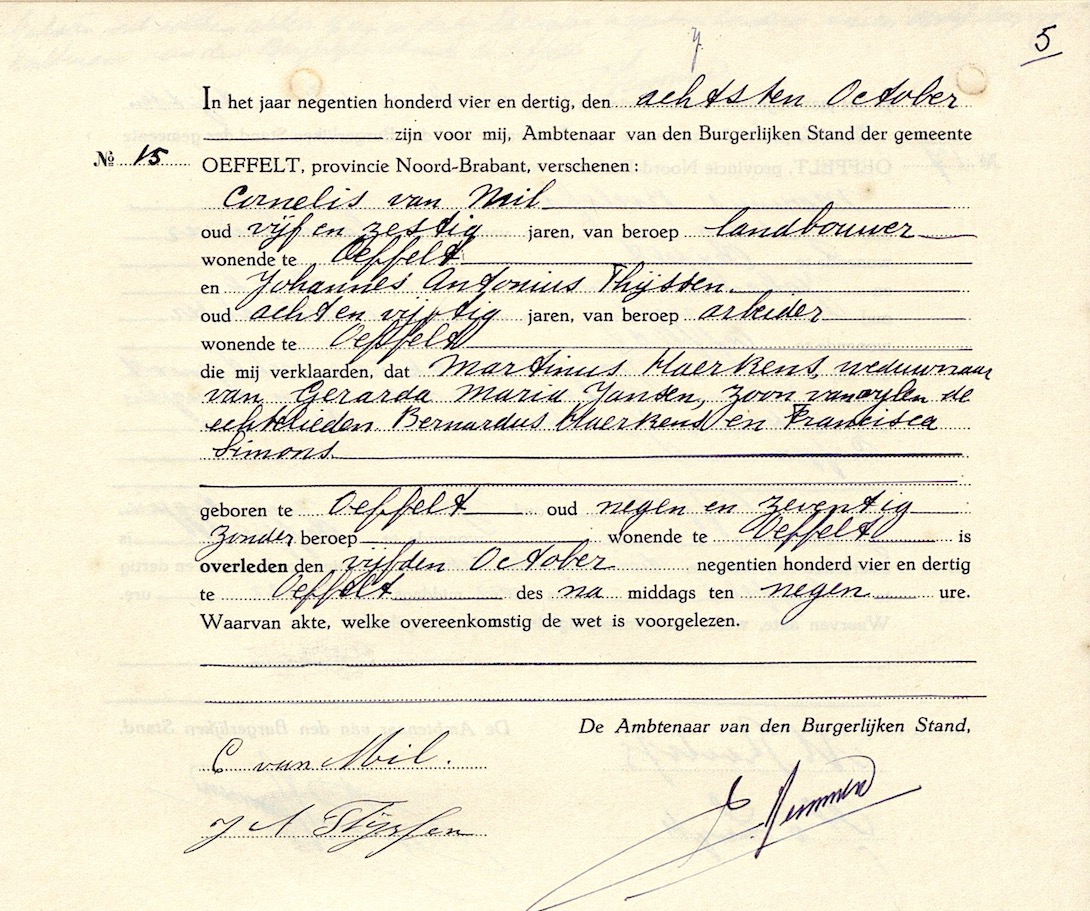 5
In het jaar negentien honderd vier en dertig, den achtsten October
zijn voor mij, Ambtenaar van den Burgerlijken Stand der gemeente
№ 15 OEFFELT, provincie Noord-Brabant, verschenen:
Cornelis van Mil
oud vijf en zestig jaren, van beroep landbouwer
wonende te Oeffelt
en Johannes Antonius Thijssen
oud acht en vijftig jaren, van beroep arbeider
wonende te Oeffelt
die mij verklaarden, dat Martinus Haerkens, weduwnaar
van Gerarda Maria Jansen, zoon van wylen de
echtelieden Bernardus Haerkens en Francisca
Simons
geboren te Oeffelt oud negen en zeventig
zonder beroep wonende te Oeffelt is
overleden den vijfden October negentien honderd vier en dertig
te Oeffelt des na middags ten negen ure.
Waarvan akte, welke overeenkomstig de wet is voorgelezen.
De Ambtenaar van den Burgerlijken Stand,
C van Mil.
J A Thijssen